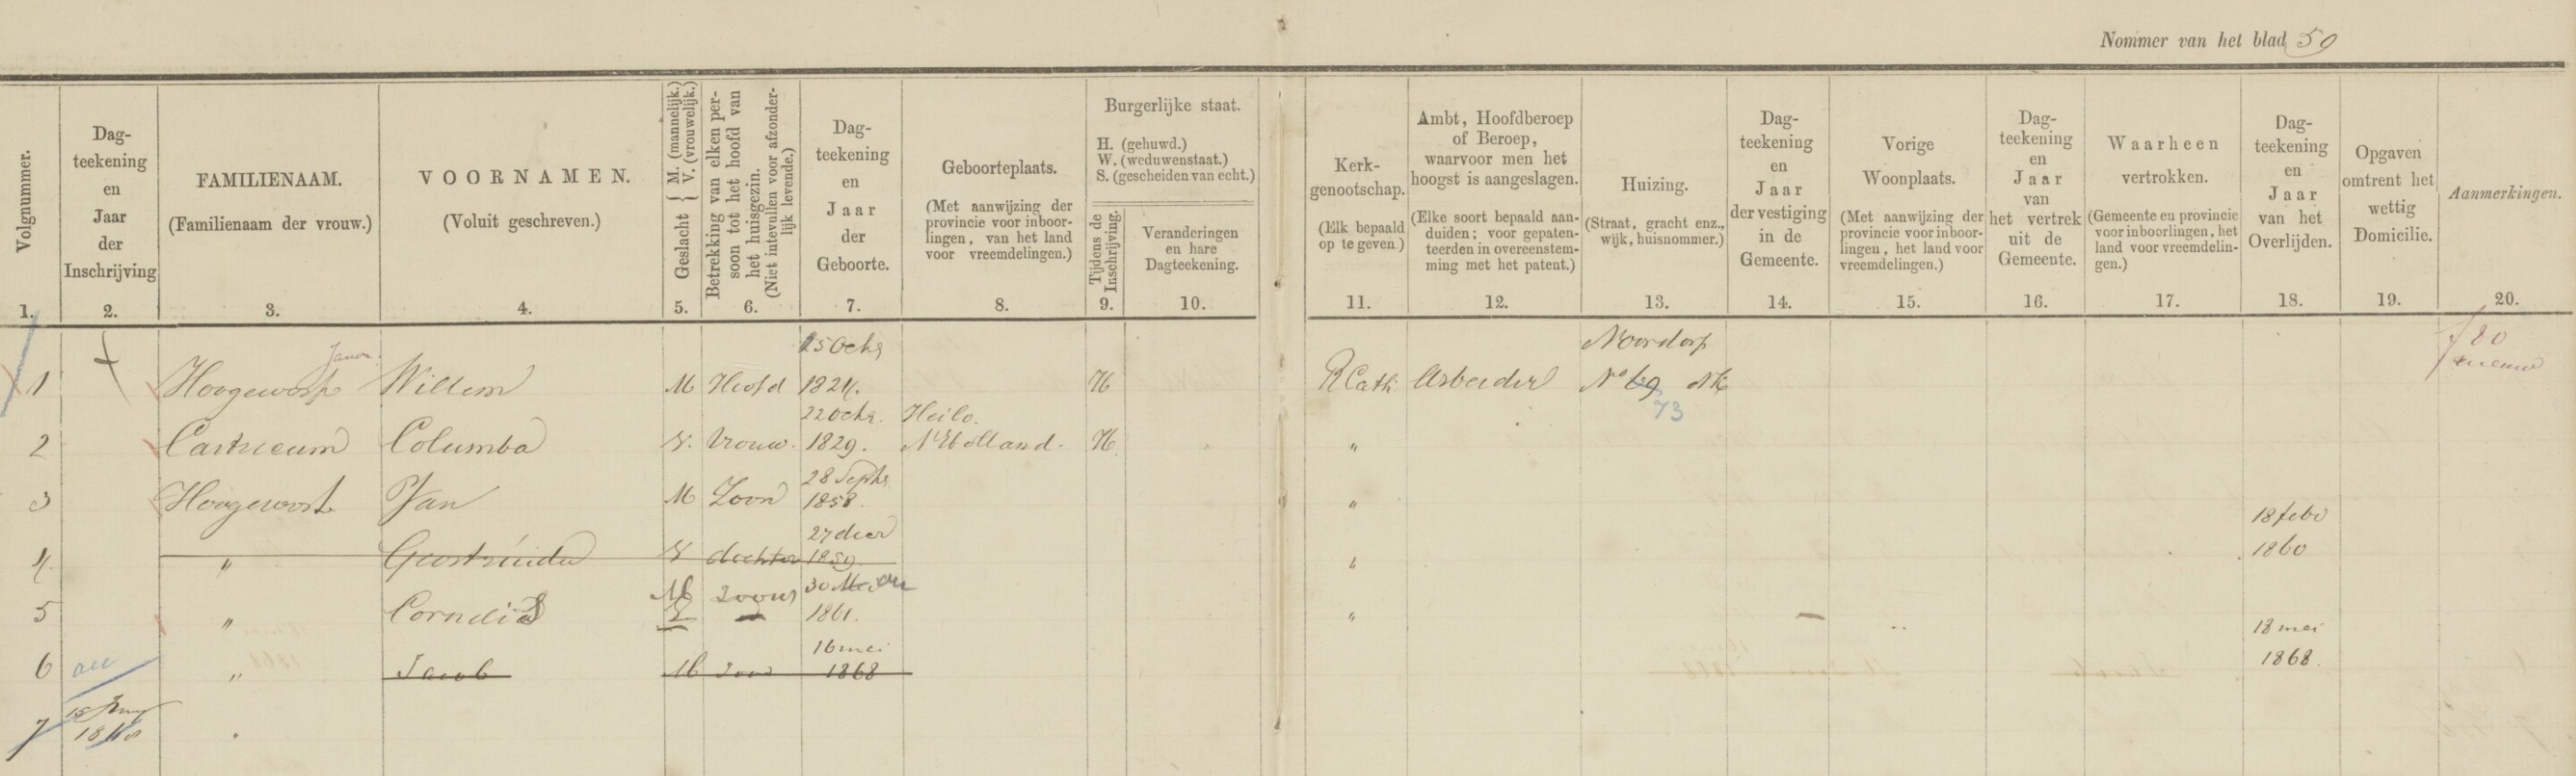 Nommer van het blad 59
Volgnummer.
1.
Dag-
teekening
en
Jaar
der
Inschrijving
2.
FAMILIENAAM.
(Familienaam der vrouw.)
3.
VOORNAMEN.
(Voluit geschreven.)
4.
Geslacht { M. (mannelijk.)
V. (vrouwelijk.) }
5.
Betrekking van elken per-
soon tot het hoofd van
het huisgezin.
(Niet intevullen voor afzonder-
lijk levende.)
6.
Dag-
teekening
en
Jaar
der
Geboorte.
7.
Geboorteplaats.
(Met aanwijzing der
provincie voor inboor-
lingen, van het land
voor vreemdelingen.)
8.
Burgerlijke staat.
H. (gehuwd.)
W. (weduwenstaat.)
S. (gescheiden van echt.)
Tijdens de
Inschrijving.
9.
Veranderingen
en hare
Dagteekening.
10.
Kerk-
genootschap.
(Elk bepaald
op te geven.)
11.
Ambt, Hoofdberoep
of Beroep,
waarvoor men het
hoogst is aangeslagen.
(Elke soort bepaald aan-
duiden; voor gepaten-
teerden in overeenstem-
ming met het patent.)
12.
Huizing.
(Straat, gracht enz.,
wijk, huisnommer.)
13.
Dag-
teekening
en
Jaar
der vestiging
in de
Gemeente.
14.
Vorige
Woonplaats.
(Met aanwijzing der
provincie voor inboor-
lingen, het land voor
vreemdelingen.)
15.
Dag-
teekening
en
Jaar
van
het vertrek
uit de
Gemeente.
16.
Waarheen
vertrokken.
(Gemeente en provincie
voor inboorlingen, het
land voor vreemdelin-
gen.)
17.
Dag-
teekening
en
Jaar
van het
Overlijden.
18.
Opgaven
omtrent het
wettig
Domicilie.
19.
Aanmerkingen.
20.
25 Octr
Noordorp
f 80
1 Hoogevorst Willem M Hoofd 1824. H RCath Arbeider No 69
73
22 Octr. Heilo.
2 Castricum Columba V. Vrouw. 1829. NHolland. H "
28 Septr
3 Hoogevorst Jan M Zoon 1858. "
27 decr 18 febr
4 " Geertruida V dochter 1859. " 1860
M zoon 30
5 " Cornelis V 1861. "
16 mei 18 mei
6 " Jacob M zoon 1868 1868.
15
7